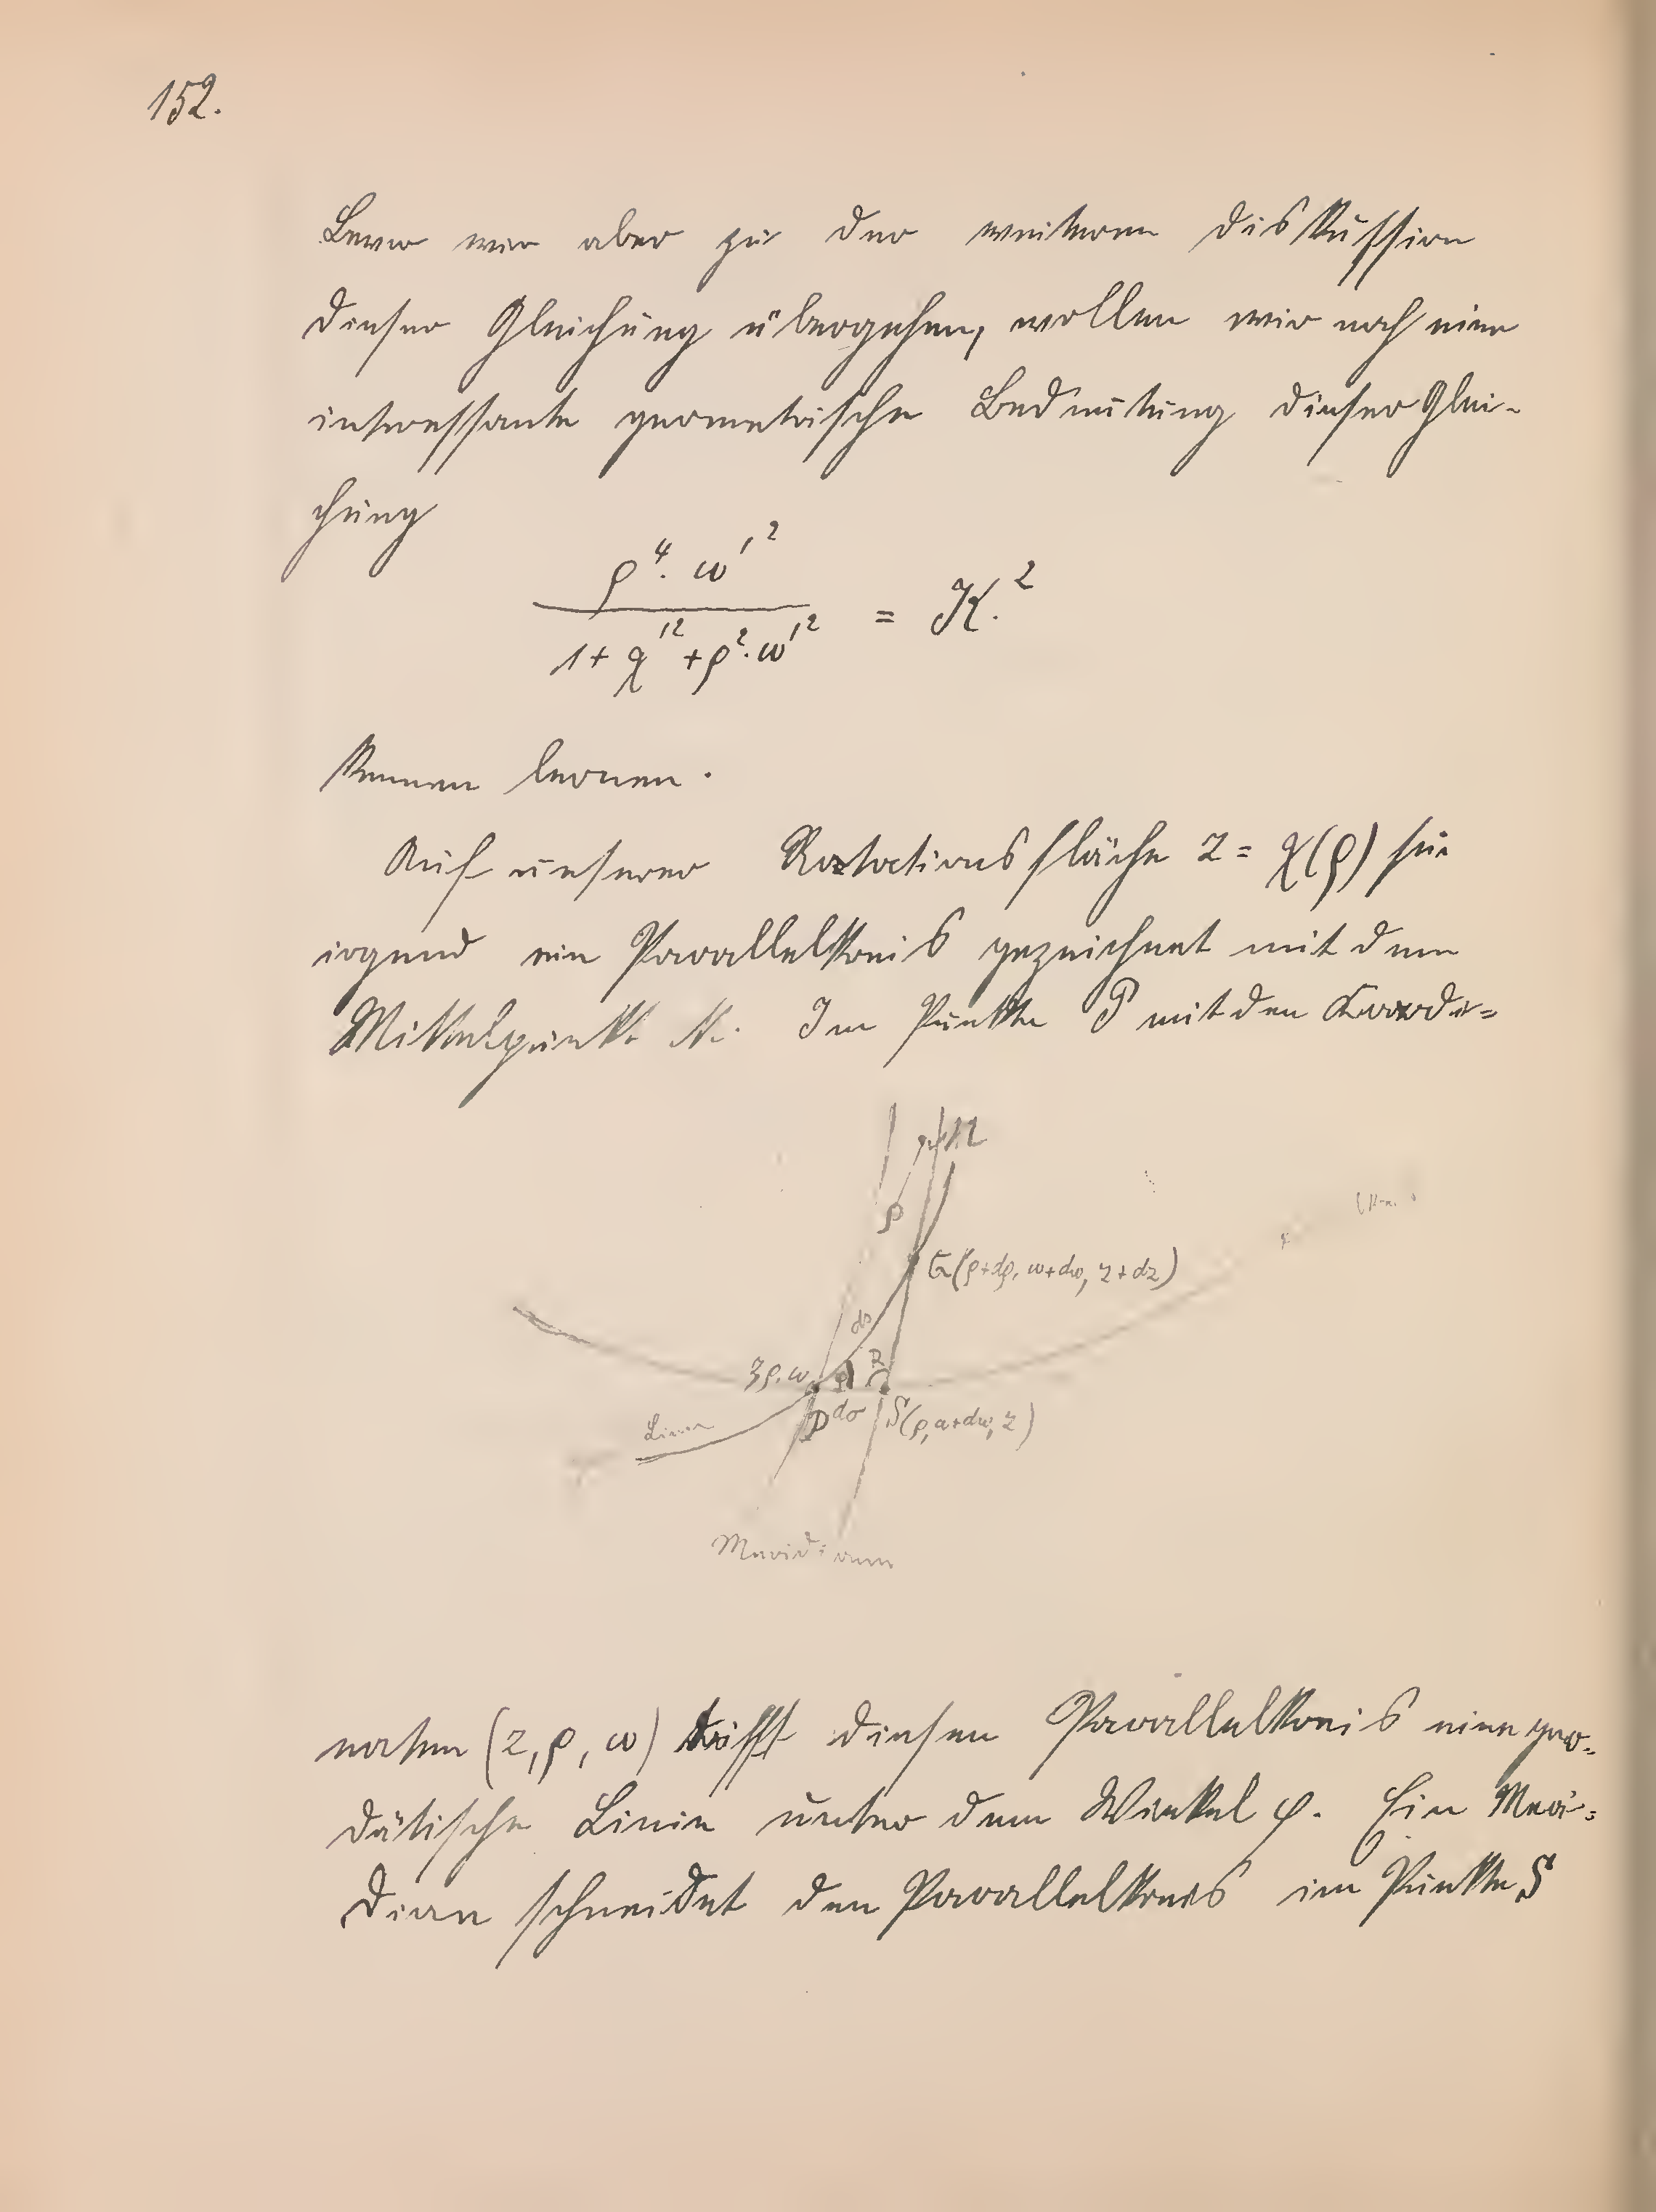 152.
Bevor wir aber zu der weiteren Diskussion
dieser Gleichung übergehen, wollen wir noch eine
interessante geometrische Bedeutung dieser Glei-
chung
ρ⁴·ω'² / (1+χ'²+ρ²·ω'²) = K.²
kennen lernen.
Auf unserer Rotationsfläche z = χ(ρ) sei
irgend ein Parallelkreis gezeichnet mit dem
Mittelpunkt M. Im Punkte P mit den Coordi=
M
ρ
G(ρ+dρ, ω+dω, z+dz)
ds
R
zρ,ω
φ
P dσ S(ρ,ω+dω,z)
Linie
Meridiane
naten (z, ρ, ω) trifft diesen Parallelkreis eine geo=
dätische Linie unter dem Winkel φ. Ein Meri=
dian schneidet den Parallelkreis im Punkte S